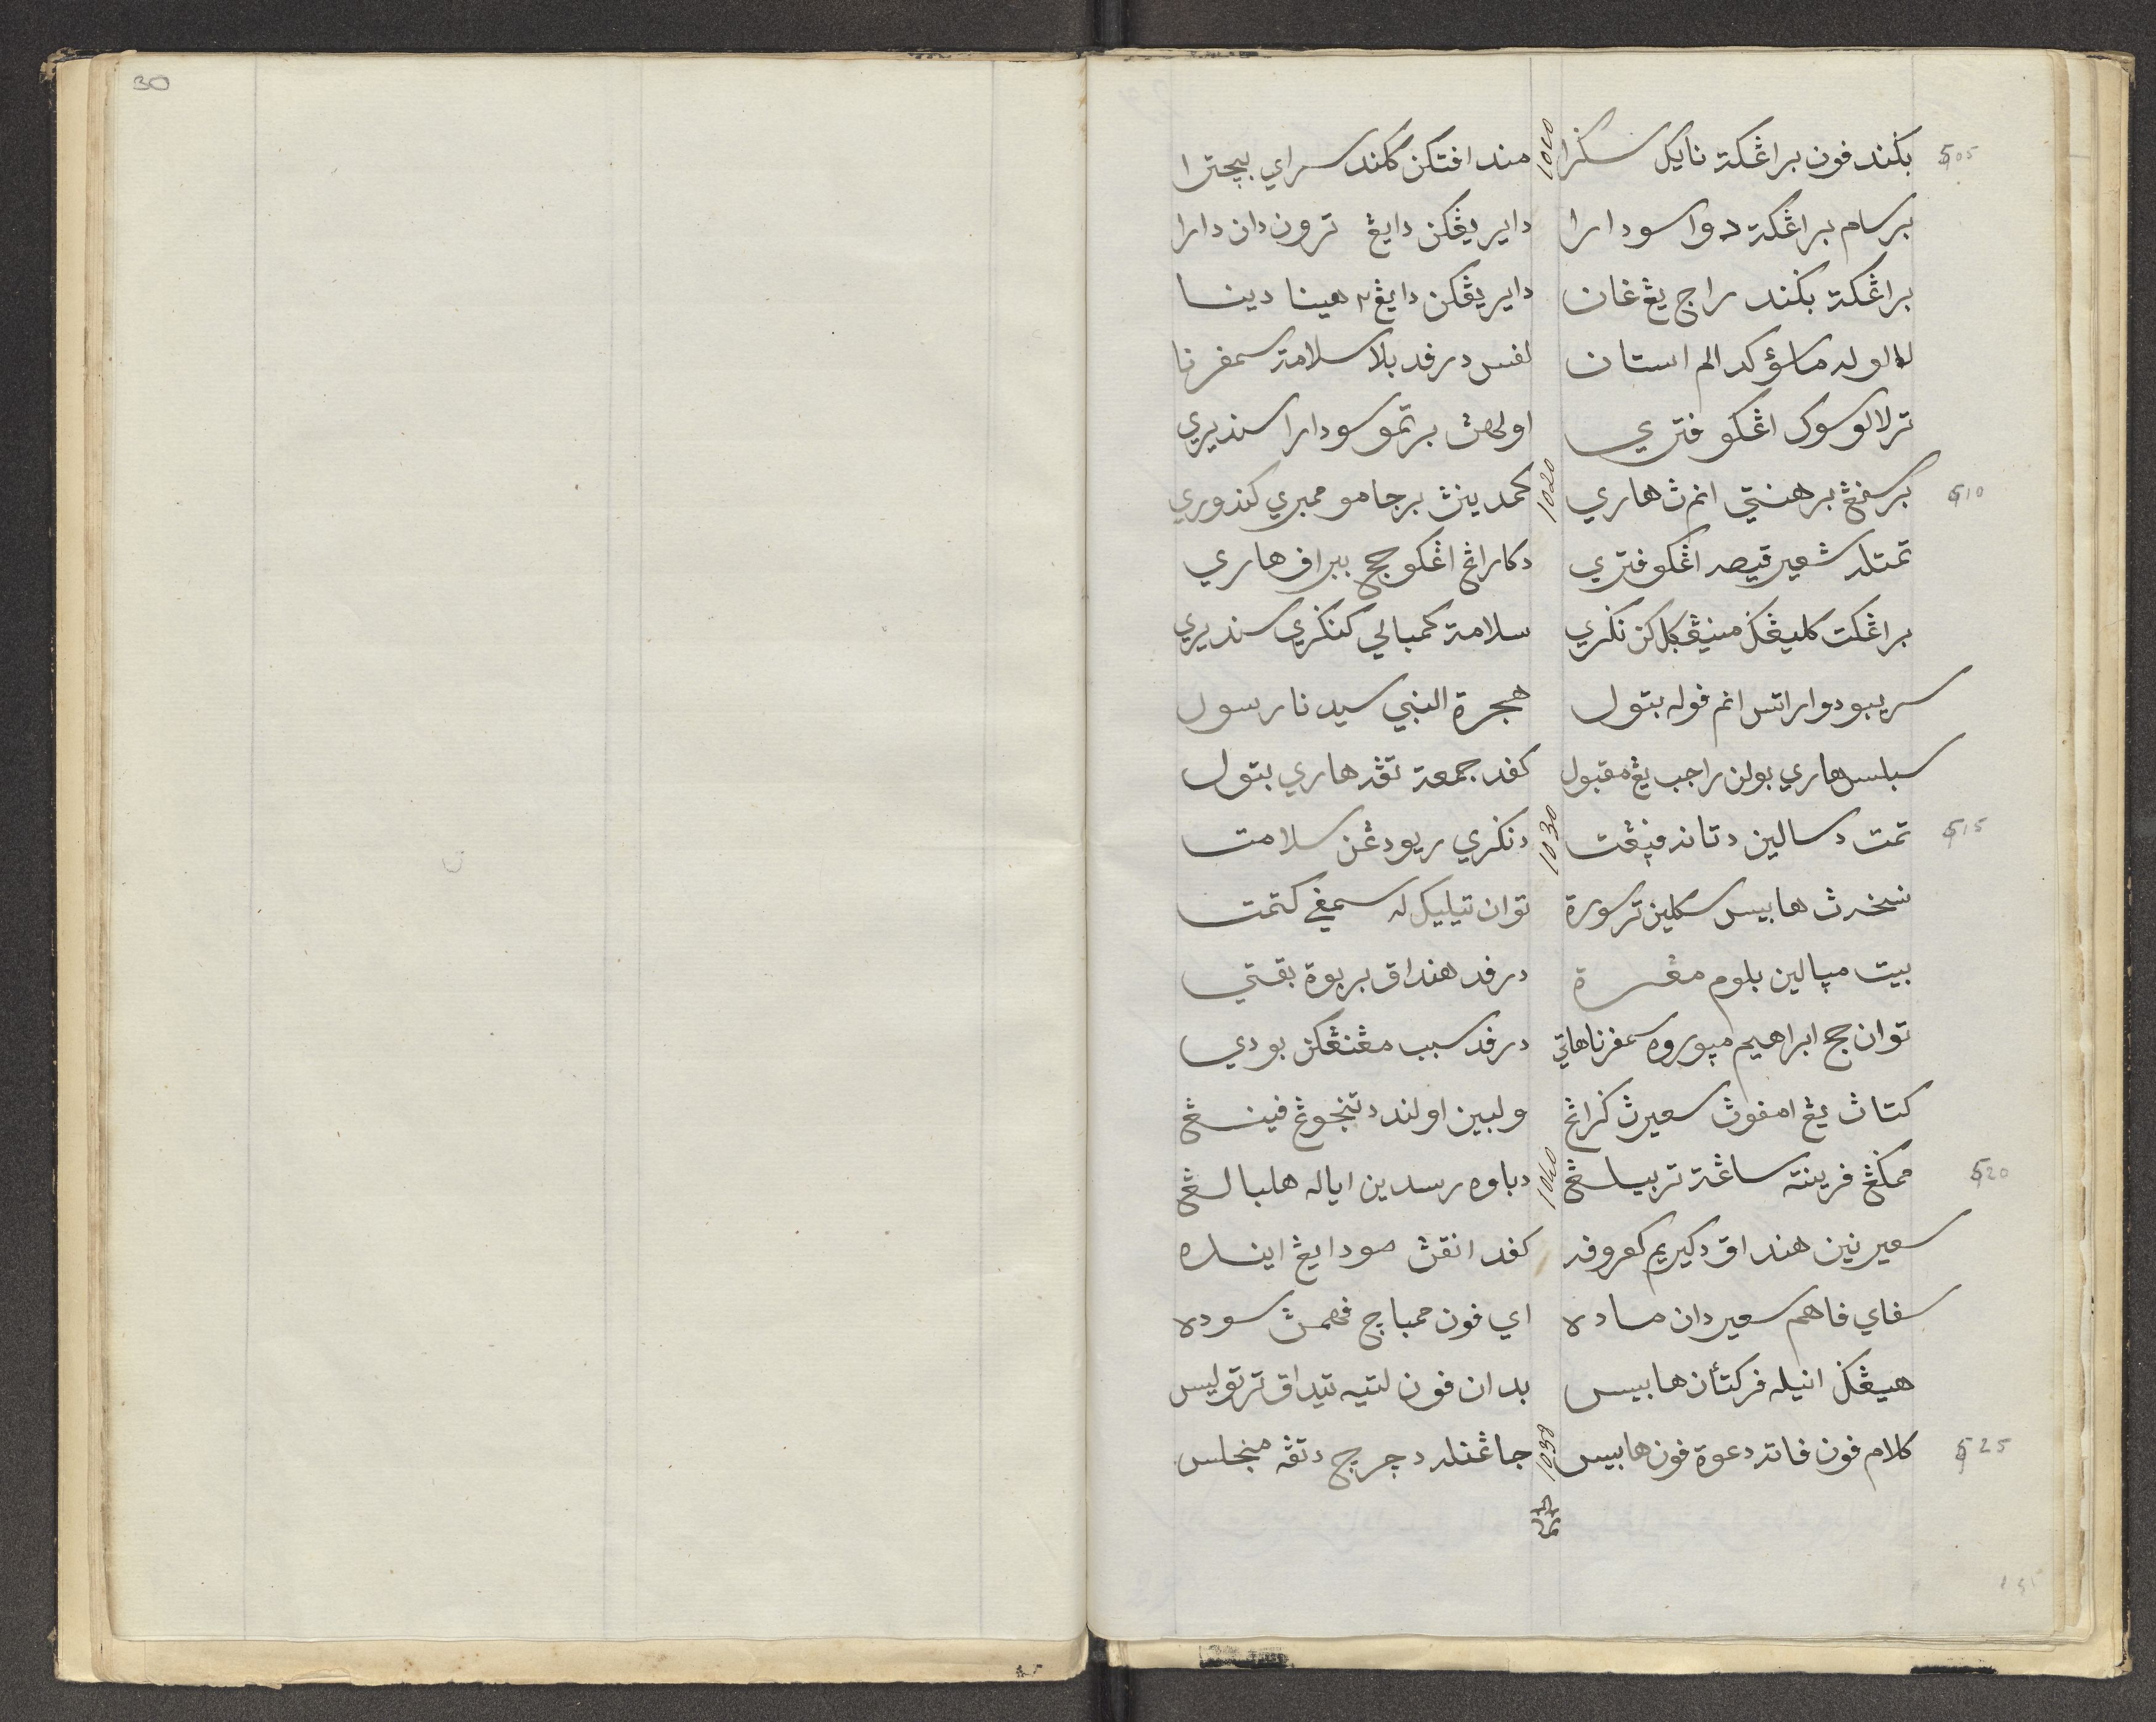 30
505 بكند فون براڠكة نايك سݢرا 1010 منداڤتكن ككند سراي بيچترا
برسام براڠكة دوا سودارا داير يڠكن دايڠ ترون دان دارا
براڠكة بكند راج يڠ غان داير يڠكن دايڠ٢ هينا دينا
لالوله ماسؤ كدالم استان لفس درفد بلا سلامة سمفرنا
ترلالو سوك اڠكو فتري اولهڽ برتمو سودارا سنديري
510 برسنڠ برهنتي انم ڽ هاري 1020 كمدينڽ برجامو ممبري كندوري
تمتله شعير قيصه اڠكو فتري دكارڠ اڠكو حج ببراف هاري
براڠكت كليڠݢ منيڠݢلكن نݢري سلامة كمبالي كنݢري سنديري
سريبو دوا راتس انم فوله بتول هجرة النبي سيدنا رسول
سبلس هاري بولن راجب يڠ مقبول كفد جمعة تڤة هاري بتول
515 تمت دسالين دتانه فڽڠت 1030 دنݢري ريو دڠن سلامت
نسخهڽ هابيس سكلين ترسورة توان تيليكله سمڤي كتمت
بيت مڽالين بلوم مڠرة درفد هنداق بربوة بقتي
توان حج ابراهيم مڽوروه سمفرنا هاتي درفد سبب مڠنڠكن بودي
كتاڽ يڠ امفوڽ سعيرڽ كراڠ ولبين اولند دتنجوڠ فينڠ
520 ممݢڠ فرينته ساڠة تربيلڠ 1040 دباوه رسدين اياله هلبالڠ
سعير نين هنداق دكيريم كعروفه كفد انقڽ مودا يڠ اينده
سفاي فاهم سعير دان ماده اي فون ممباچ فهمڽ سوده
هيڠݢ انيله فركتأن هابيس بدان فون لتيه تيداق ترتوليس
525 كلام فون فاته دعوة فون هابيس 1050 جاڠنله دچرچ دتڠه مجلس